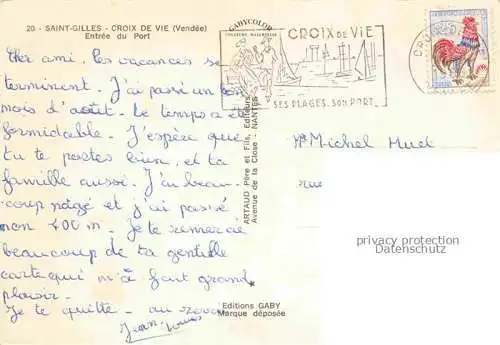 20 - SAINT-GILLES - CROIX DE VIE (Vendée)
Entrée du Port
Cher ami. les vacances se
terminent. J'ai passé un bon
mois d'août. Le temps a été
formidable. J'espère que
tu te portes bien, et ta
famille aussi. J'ai beau-
coup nagé et j'ai passé
mon 400 m. Je te remercie
beaucoup de ta gentille
carte qui m'a fait grand
plaisir.
Je te quitte - au revoir
Jean
GABYCOLOR
COULEURS NATURELLES
ARTAUD Père et Fils, Editeurs
Avenue de la Close - NANTES
Editions GABY
Marque déposée
CROIX DE VIE
SES PLAGES, SON PORT
Mr Michel
Rue
privacy protection
DATENSCHUTZ